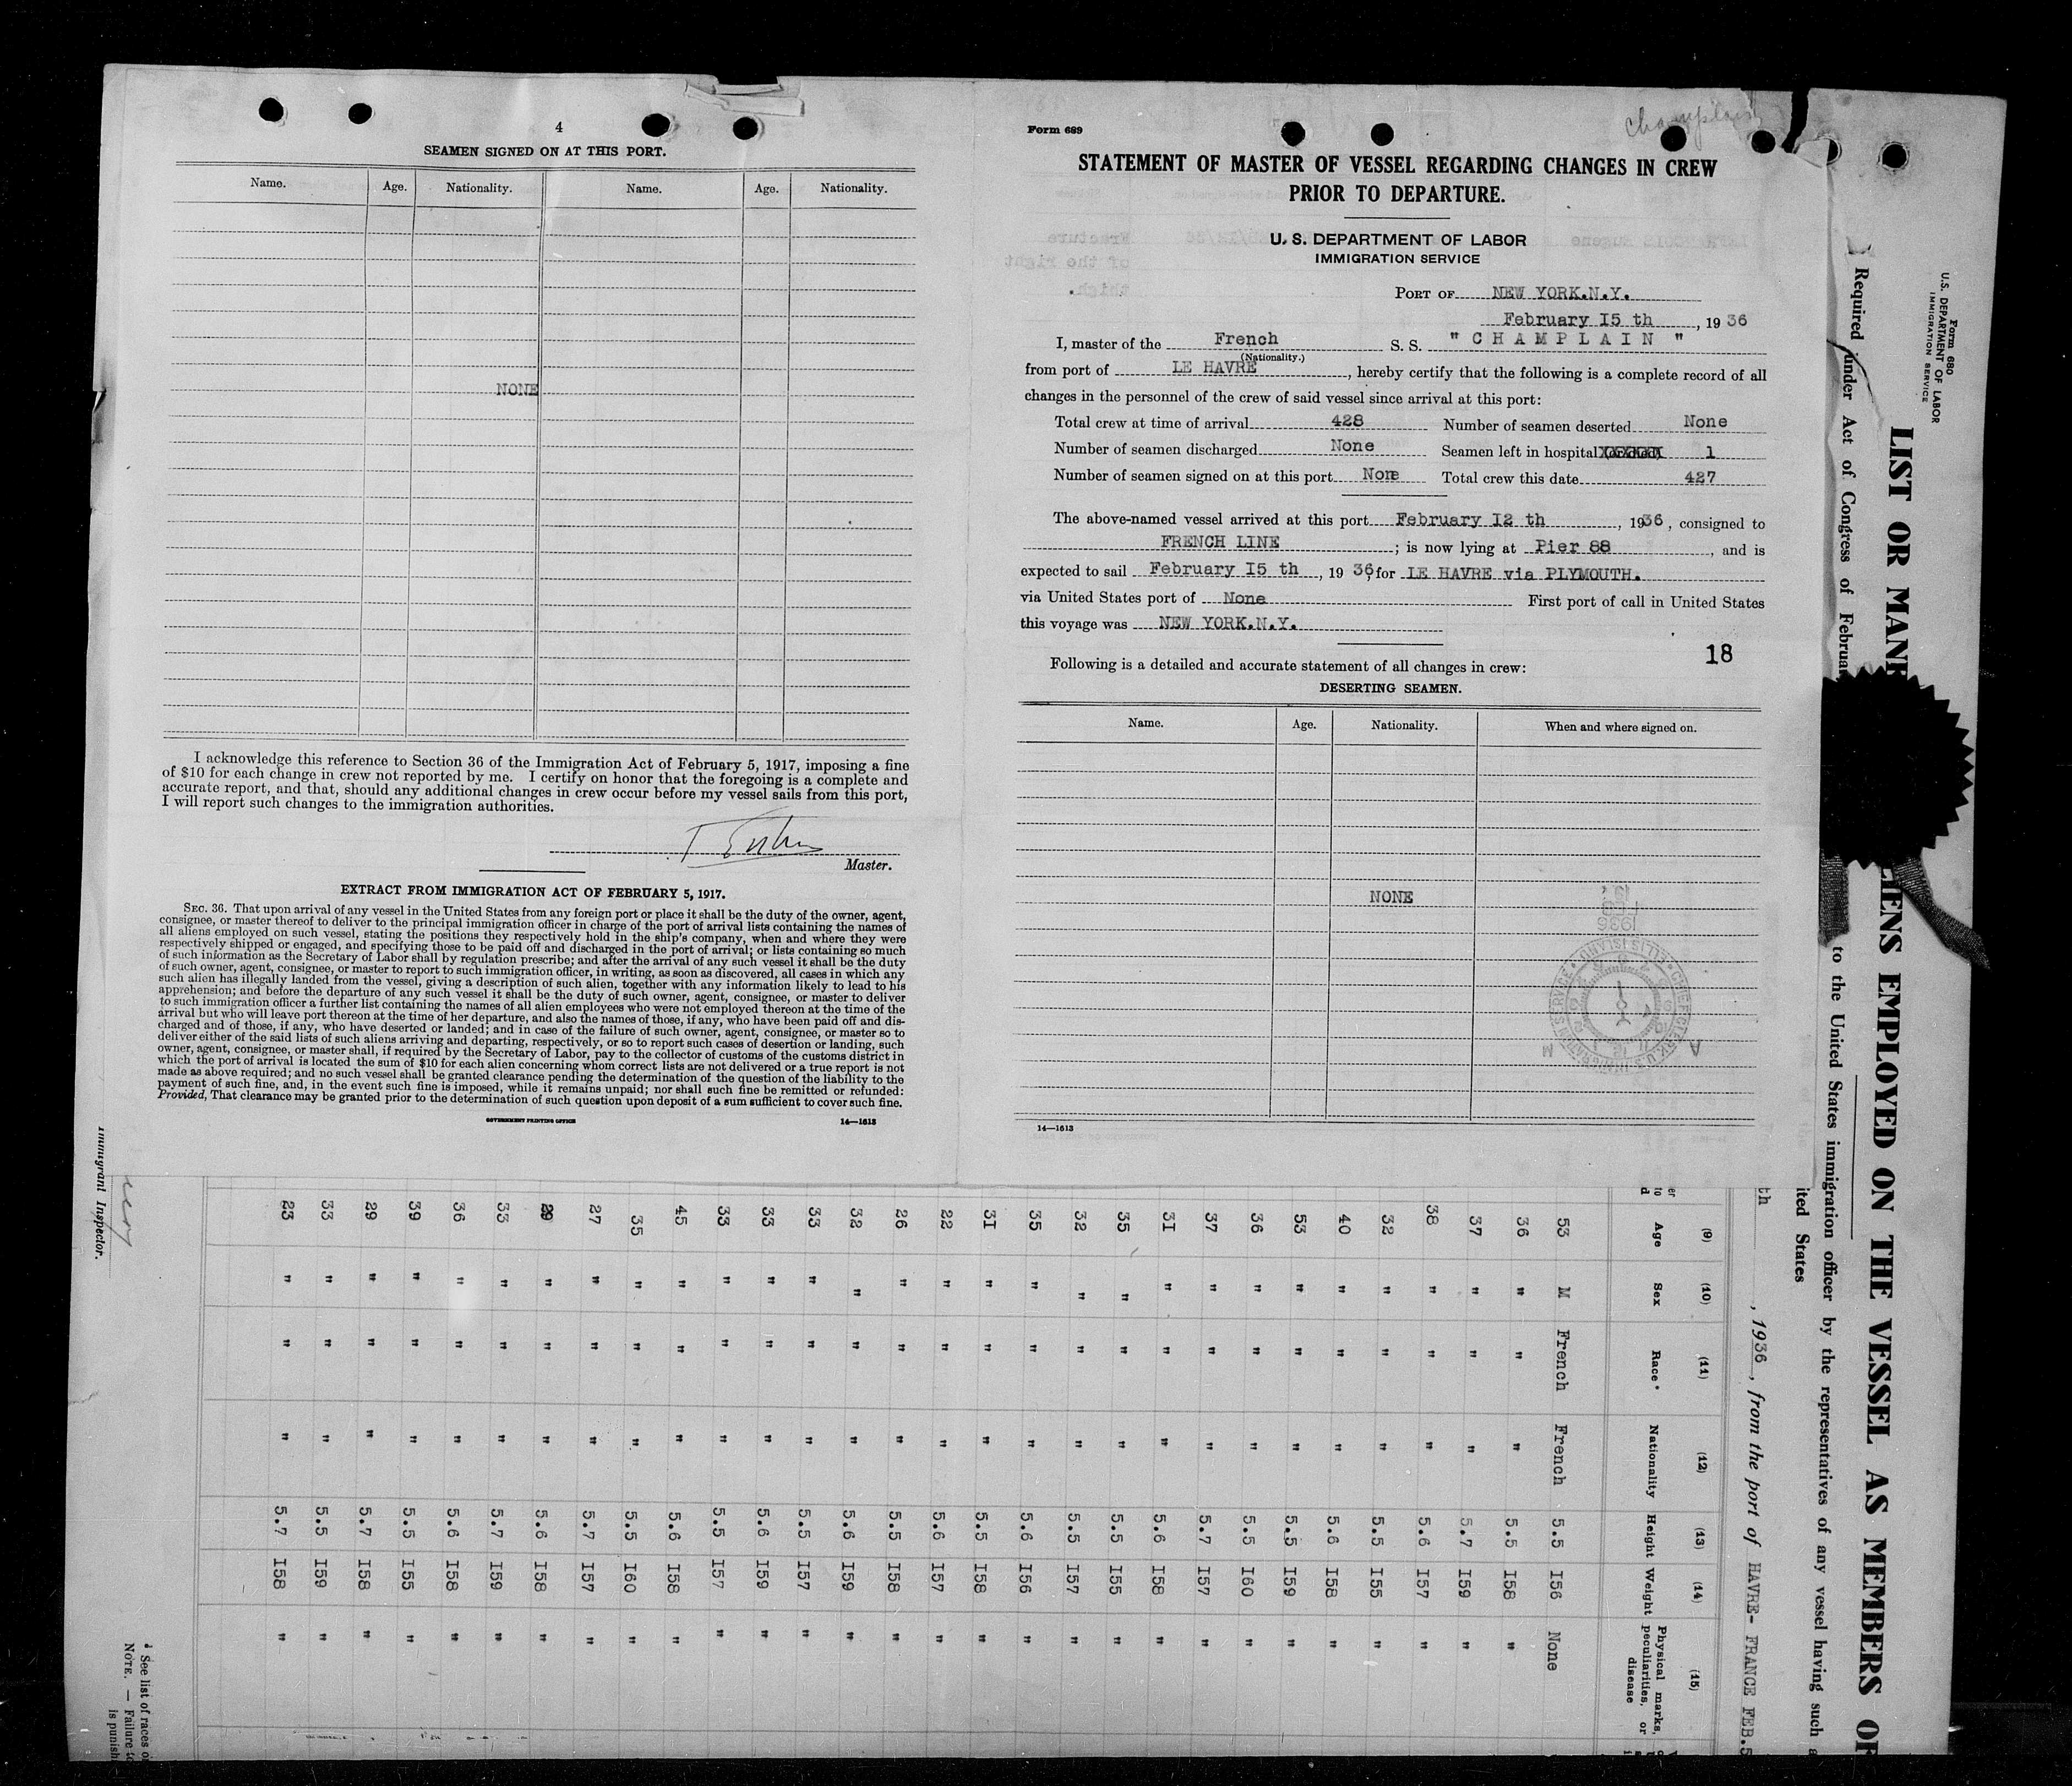 4
SEAMEN SIGNED ON AT THIS PORT.
Name. Age. Nationality. Name. Age. Nationality.
NONE
I acknowledge this reference to Section 36 of the Immigration Act of February 5, 1917, imposing a fine
of $10 for each change in crew not reported by me. I certify on honor that the foregoing is a complete and
accurate report, and that, should any additional changes in crew occur before my vessel sails from this port,
I will report such changes to the immigration authorities.
Master.
EXTRACT FROM IMMIGRATION ACT OF FEBRUARY 5, 1917.
SEC. 36. That upon arrival of any vessel in the United States from any foreign port or place it shall be the duty of the owner, agent,
consignee, or master thereof to deliver to the principal immigration officer in charge of the port of arrival lists containing the names of
all aliens employed on such vessel, stating the positions they respectively hold in the ship's company, when and where they were
respectively shipped or engaged, and specifying those to be paid off and discharged in the port of arrival; or lists containing so much
of such information as the Secretary of Labor shall by regulation prescribe; and after the arrival of any such vessel it shall be the duty
of such owner, agent, consignee, or master to report to such immigration officer, in writing, as soon as discovered, all cases in which any
such alien has illegally landed from the vessel, giving a description of such alien, together with any information likely to lead to his
apprehension; and before the departure of any such vessel it shall be the duty of such owner, agent, consignee, or master to deliver
to such immigration officer a further list containing the names of all alien employees who were not employed thereon at the time of the
arrival but who will leave port thereon at the time of her departure, and also the names of those, if any, who have been paid off and dis-
charged and of those, if any, who have deserted or landed; and in case of the failure of such owner, agent, consignee, or master so to
deliver either of the said lists of such aliens arriving and departing, respectively, or so to report such cases of desertion or landing, such
owner, agent, consignee, or master shall, if required by the Secretary of Labor, pay to the collector of customs of the customs district in
which the port of arrival is located the sum of $10 for each alien concerning whom correct lists are not delivered or a true report is not
made as above required; and no such vessel shall be granted clearance pending the determination of the question of the liability to the
payment of such fine, and, in the event such fine is imposed, while it remains unpaid; nor shall such fine be remitted or refunded:
Provided, That clearance may be granted prior to the determination of such question upon deposit of a sum sufficient to cover such fine.
GOVERNMENT PRINTING OFFICE 14—1613
Form 689
Champlain
STATEMENT OF MASTER OF VESSEL REGARDING CHANGES IN CREW
PRIOR TO DEPARTURE.
U. S. DEPARTMENT OF LABOR
IMMIGRATION SERVICE
PORT OF NEW YORK.N.Y.
February I5 th, 19 36
I, master of the French S. S. " C H A M P L A I N "
(Nationality.)
from port of LE HAVRE, hereby certify that the following is a complete record of all
changes in the personnel of the crew of said vessel since arrival at this port:
Total crew at time of arrival 428 Number of seamen deserted None
Number of seamen discharged None Seamen left in hospital 1
Number of seamen signed on at this port None Total crew this date 427
The above-named vessel arrived at this port February I2 th, 1936, consigned to
FRENCH LINE; is now lying at Pier 88, and is
expected to sail February I5 th, 19 36, for LE HAVRE via PLYMOUTH.
via United States port of None First port of call in United States
this voyage was NEW YORK.N.Y.
18
Following is a detailed and accurate statement of all changes in crew:
DESERTING SEAMEN.
Name. Age. Nationality. When and where signed on.
NONE
14—1613
Form 680
U.S. DEPARTMENT OF LABOR
IMMIGRATION SERVICE
LIST OR MANI
LIENS EMPLOYED ON THE VESSEL AS MEMBERS OF
Required under Act of Congress of Februar
to the United States immigration officer by the representatives of any vessel having such a
ited States
th, 1936, from the port of HAVRE- FRANCE FEB.5
(9) (10) (11) (12) (13) (14) (15)
Age Sex Race* Nationality Height Weight Physical marks, peculiarities, or disease
53 M French French 5.5 I56 None
36 " " " 5.5 I58 "
37 " " " 5.7 I59 "
38 " " " 5.6 I57 "
32 " " " 5.5 I55 "
40 " " " 5.6 I58 "
53 " " " 5.5 I59 "
36 " " " 5.5 I60 "
37 " " " 5.7 I57 "
3I " " " 5.6 I58 "
35 " " " 5.5 I55 "
32 " " " 5.5 I57 "
35 " " " 5.6 I56 "
3I " " " 5.5 I58 "
22 " " " 5.6 I57 "
26 " " " 5.5 I58 "
32 " " " 5.6 I59 "
33 " " " 5.5 I57 "
33 " " " 5.6 I59 "
33 " " " 5.5 I57 "
45 " " " 5.6 I58 "
35 " " " 5.5 I60 "
27 " " " 5.7 I57 "
29 " " " 5.6 I58 "
33 " " " 5.7 I59 "
36 " " " 5.6 I58 "
39 " " " 5.5 I55 "
29 " " " 5.7 I58 "
33 " " " 5.5 I59 "
23 " " " 5.7 I58 "
Immigrant Inspector.
* See list of races o
NOTE. — Failure to
is punish